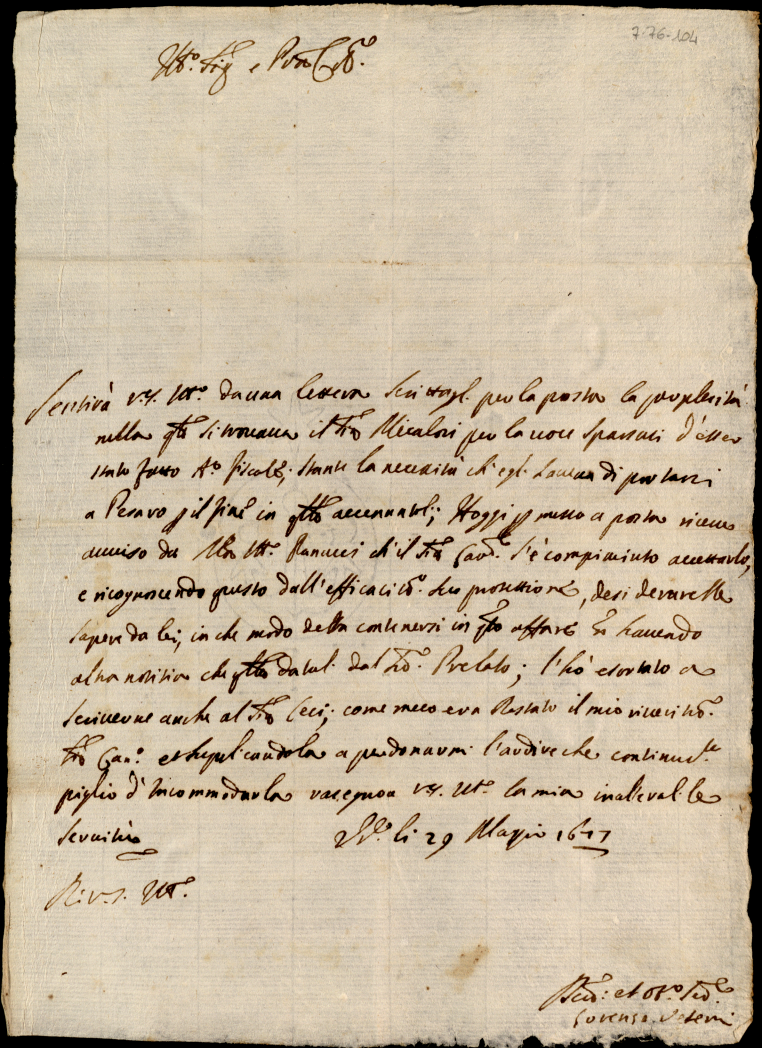 7-76-104
Ill.º Sig.r e Pron Col.º
Sentirà V.S. Ill.ª da una lettera scrittagl. per la posta la perplessità
nella qle si trovava il S.r Micalori per la voce sparsasi d'esser
stato fatto Av.º fiscale, stante la necessità ch'egli haueua di portarsi
a Pesaro p il fine in qlla accennatoli; Hoggi p messo a posta riceue
auuiso da Ill.re Panucci ch'il S.r Card.le s'è compiaciuto accettarlo,
e ricognoscendo questo dall'efficaciss.ª sua protettione, desiderarebbe
sapere da lei, in che modo debba contenersi in qto affare non hauendo
altra notitia che qlla datal. dal S.r Prelato; l'hò esortato a
scriuerne anche al S.r Ceci, come meco era restato il mio riueritiss.º
S.r Can.º et supplicandola a perdonarmi l'ardire che continuam.te
piglio d'incommodarla rassegno a V.S. Ill.ª la mia inalterabile
seruitù li 29 Maggio 1677
Di V.S. Ill.ª
et Ob.º
Lorenzo Veterani